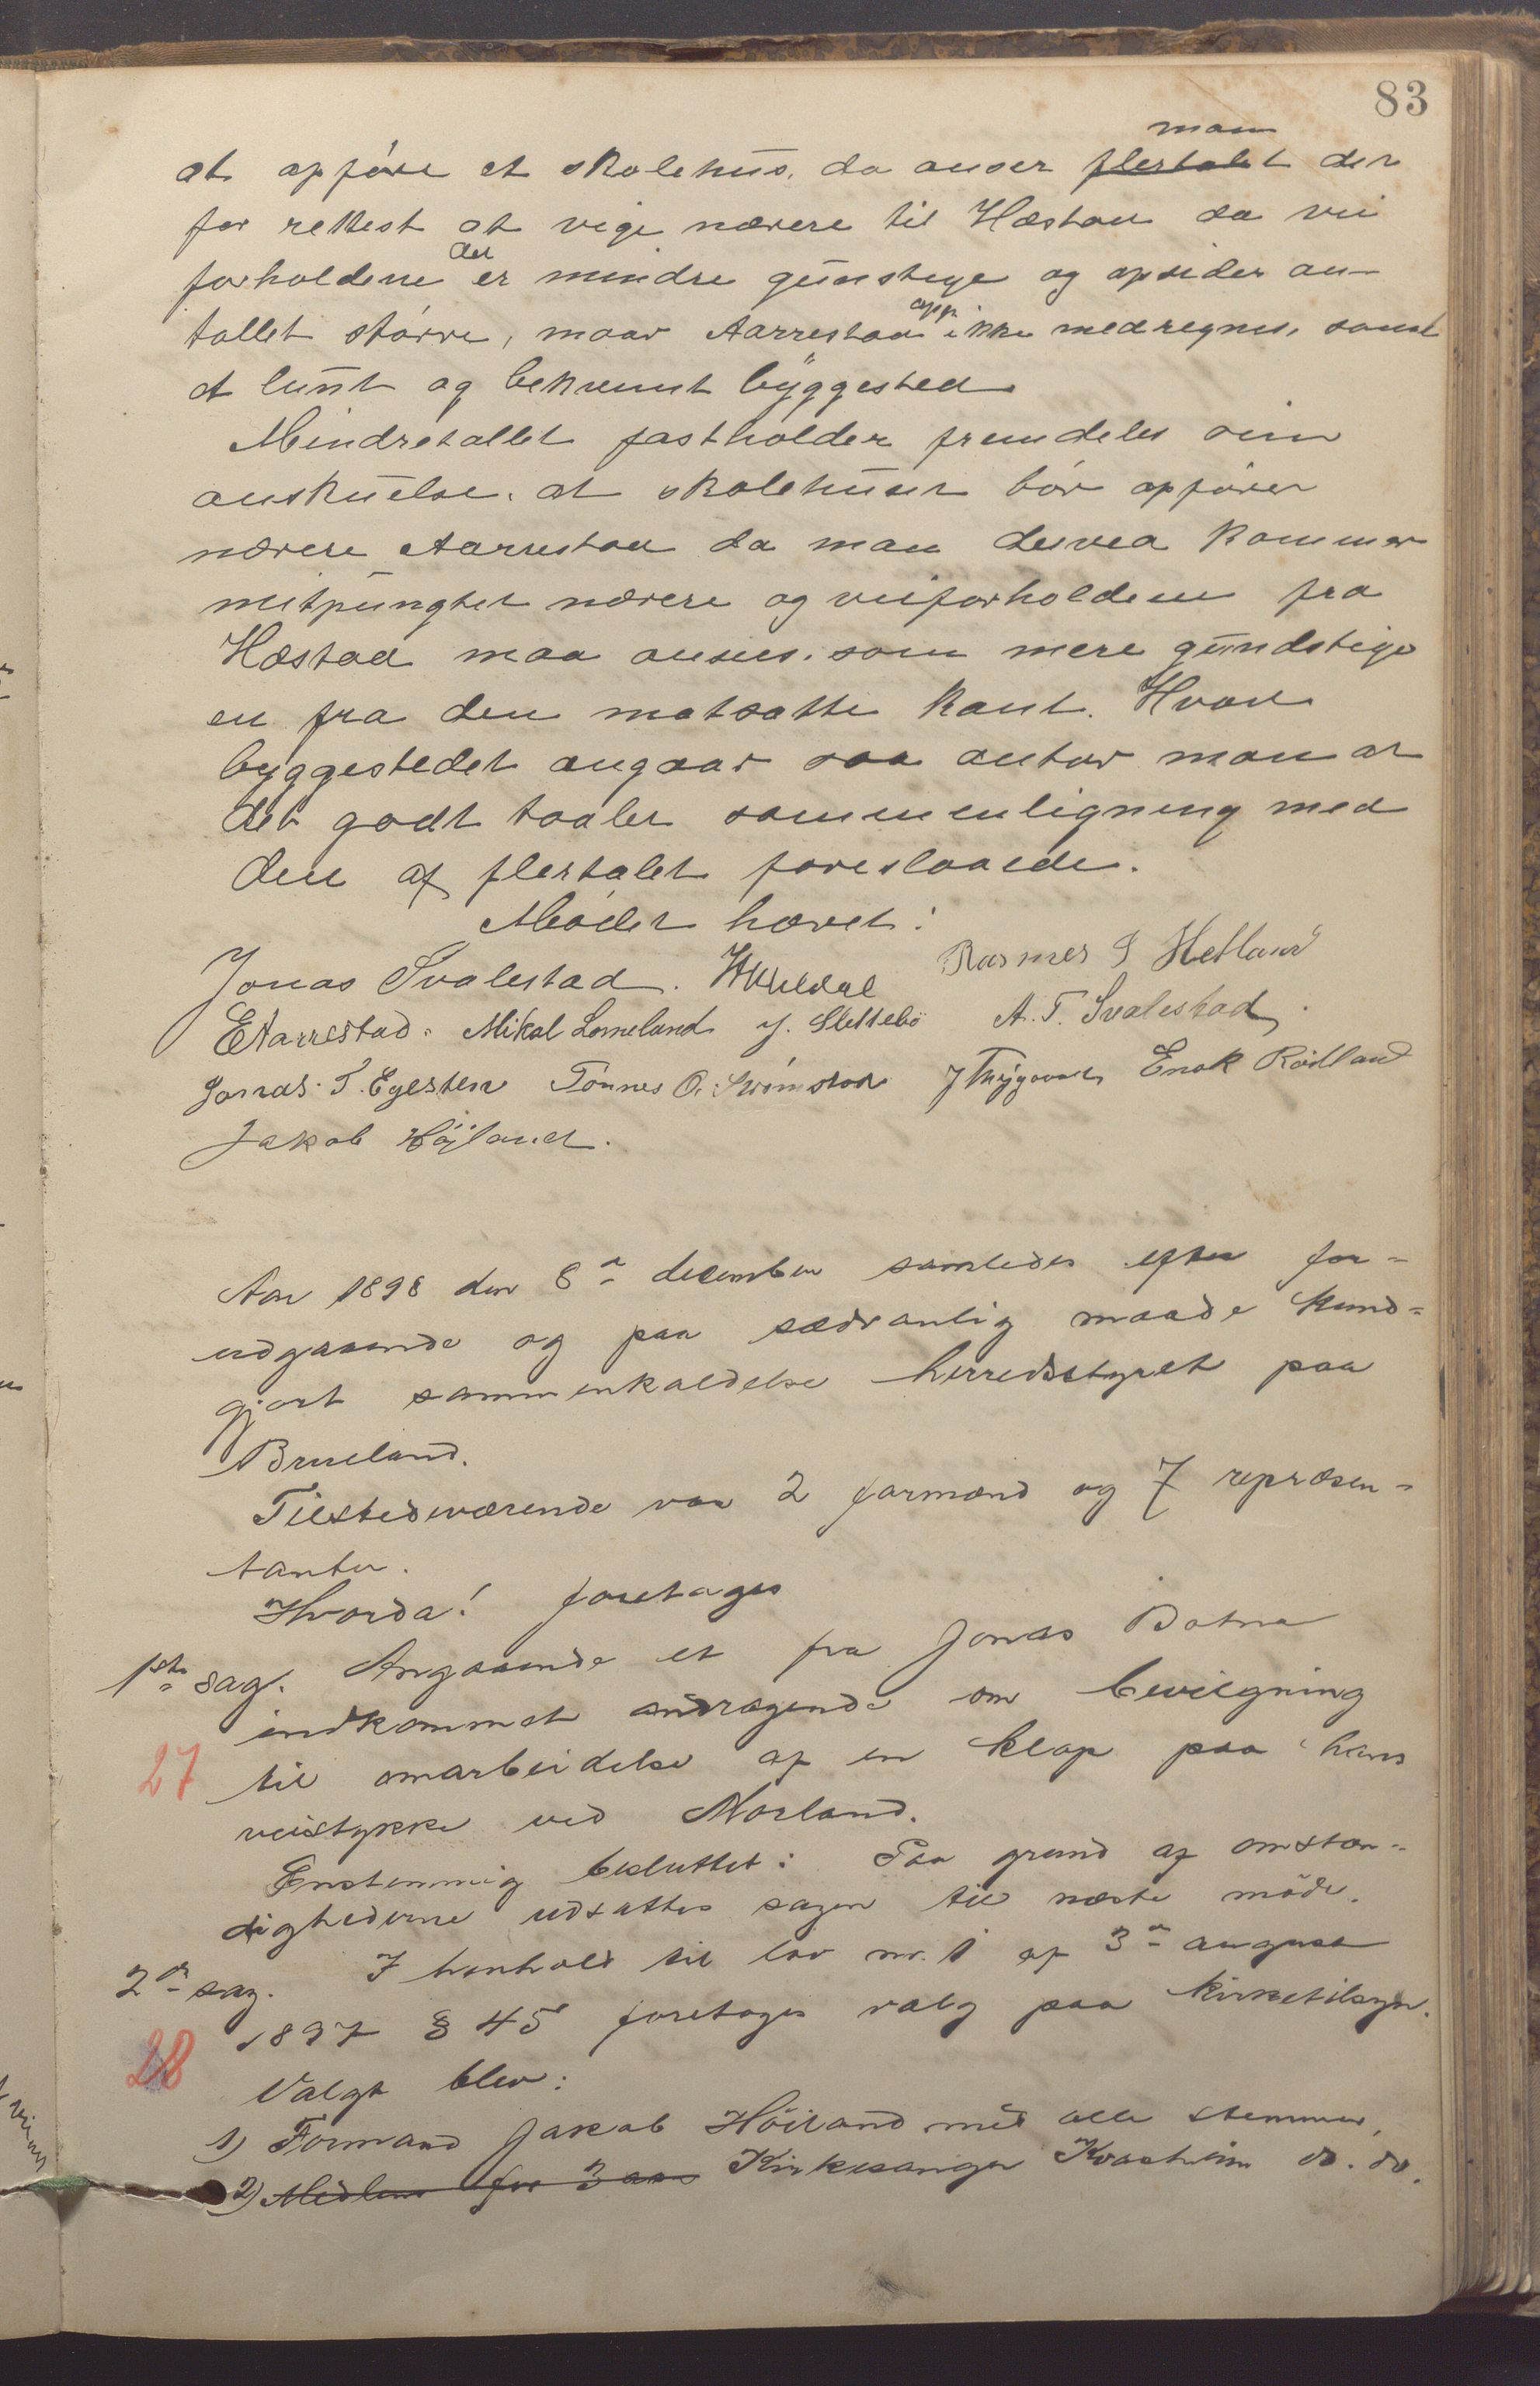 83
man
at opføre et skolehus, da anser flertalet den
for rettest at vige nærere til Hæstad da vei
der
forholdene er mindre gunstige og opsider an-
opp.
tallet større, naar Aarrestad ikke medregnes, samt
et lunt og bekvemt byggested
Mindretallet fastholder fremdeles sin
anskuelse, at skolehuset bør opføres
nærere Aarrestad da man derved kommer
mitpungtet nærere og veiforholdene fra
Hæstad maa ansees som mere gundstige
en fra den motsatte kant. Hvad
byggestedet angaar saa antar man at
det godt taaler sammenligning med
den af flertalet foreslaaede.
Mødet hævet:
Jonas Svalestad. Rasmus S Hetland
EAarrestad. Mikal Lomeland J. Slettebø A. T. Svalestad.
Jonas T. Egesten Tønnes O. Enok Rødland
Jakob Højland.
Aar 1898 den 8de december samledes efter for-
udgaaende og paa sædvanlig maade kund-
gjort sammenkaldelse herredsstyret paa
Brueland.
Tilstedeværende var 2 formænd og 7 repræsen-
tanter.
Hvorda! foretages
1ste sag. Angaaende et fra Jonas Botne
indkommet andragende om bevilgning
27 til omarbeidelse af en klop paa hans
veistykke ved Norland.
Enstemmig besluttet: Paa grund af omstæn-
dighederne udsattes sagen til næste møde.
2den sag. I henhold til lov nr. 1 af 3de august
1897 § 45 foretages valg paa kirketilsyn.
28 Valgt blev:
1) Formand Jakob Høiland med alle stemmer,
2) Medlem for 3 aar Kirkesanger Kvasheim do. do.